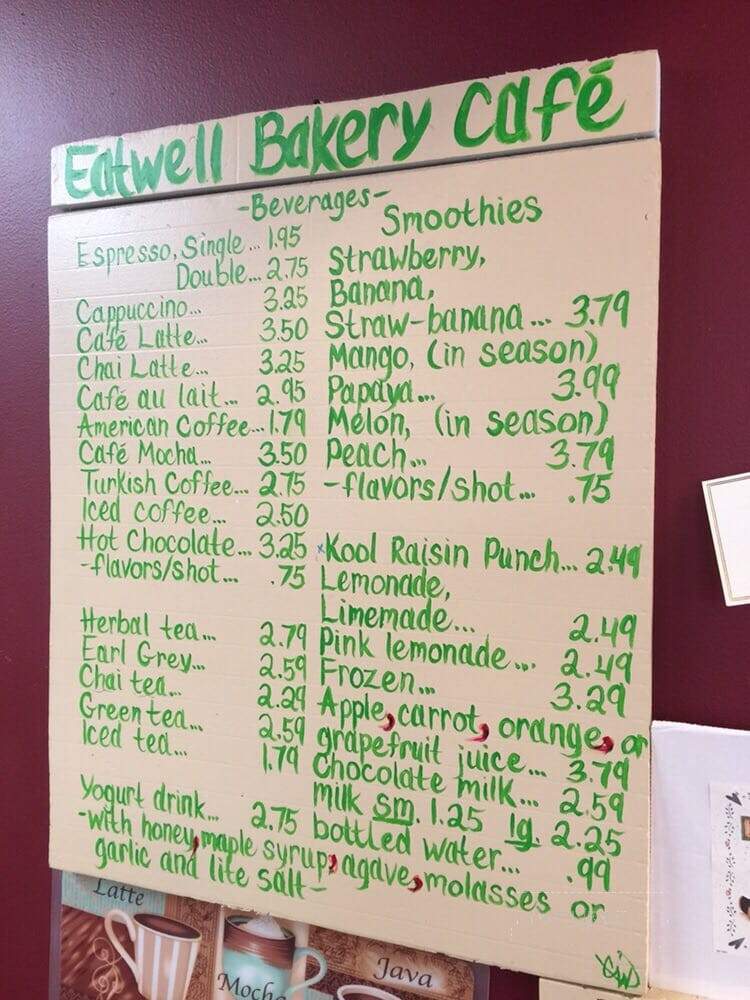 Eatwell Bakery Café
-Beverages-
Espresso, Single... 1.95
Double... 2.75
Cappuccino... 3.25
Café Latte... 3.50
Chai Latte... 3.25
Café au lait... 2.95
American Coffee... 1.79
Café Mocha... 3.50
Turkish Coffee... 2.75
Iced coffee... 2.50
Hot Chocolate... 3.25
-flavors/shot... .75
Herbal tea... 2.79
Earl Grey... 2.59
Chai tea... 2.29
Green tea... 2.59
Iced tea... 1.79
Yogurt drink... 2.75
-with honey, maple syrup, agave, molasses or
garlic and lite salt-
Smoothies
Strawberry,
Banana,
Straw-banana... 3.79
Mango, (in season)
Papaya... 3.99
Melon, (in season)
Peach... 3.79
-flavors/shot... .75
Kool Raisin Punch... 2.49
Lemonade,
Limemade... 2.49
Pink lemonade... 2.49
Frozen... 3.29
Apple, carrot, orange, or
grapefruit juice... 3.79
Chocolate milk... 2.59
milk sm. 1.25 lg. 2.25
bottled water... .99
Latte
Mocha
Java